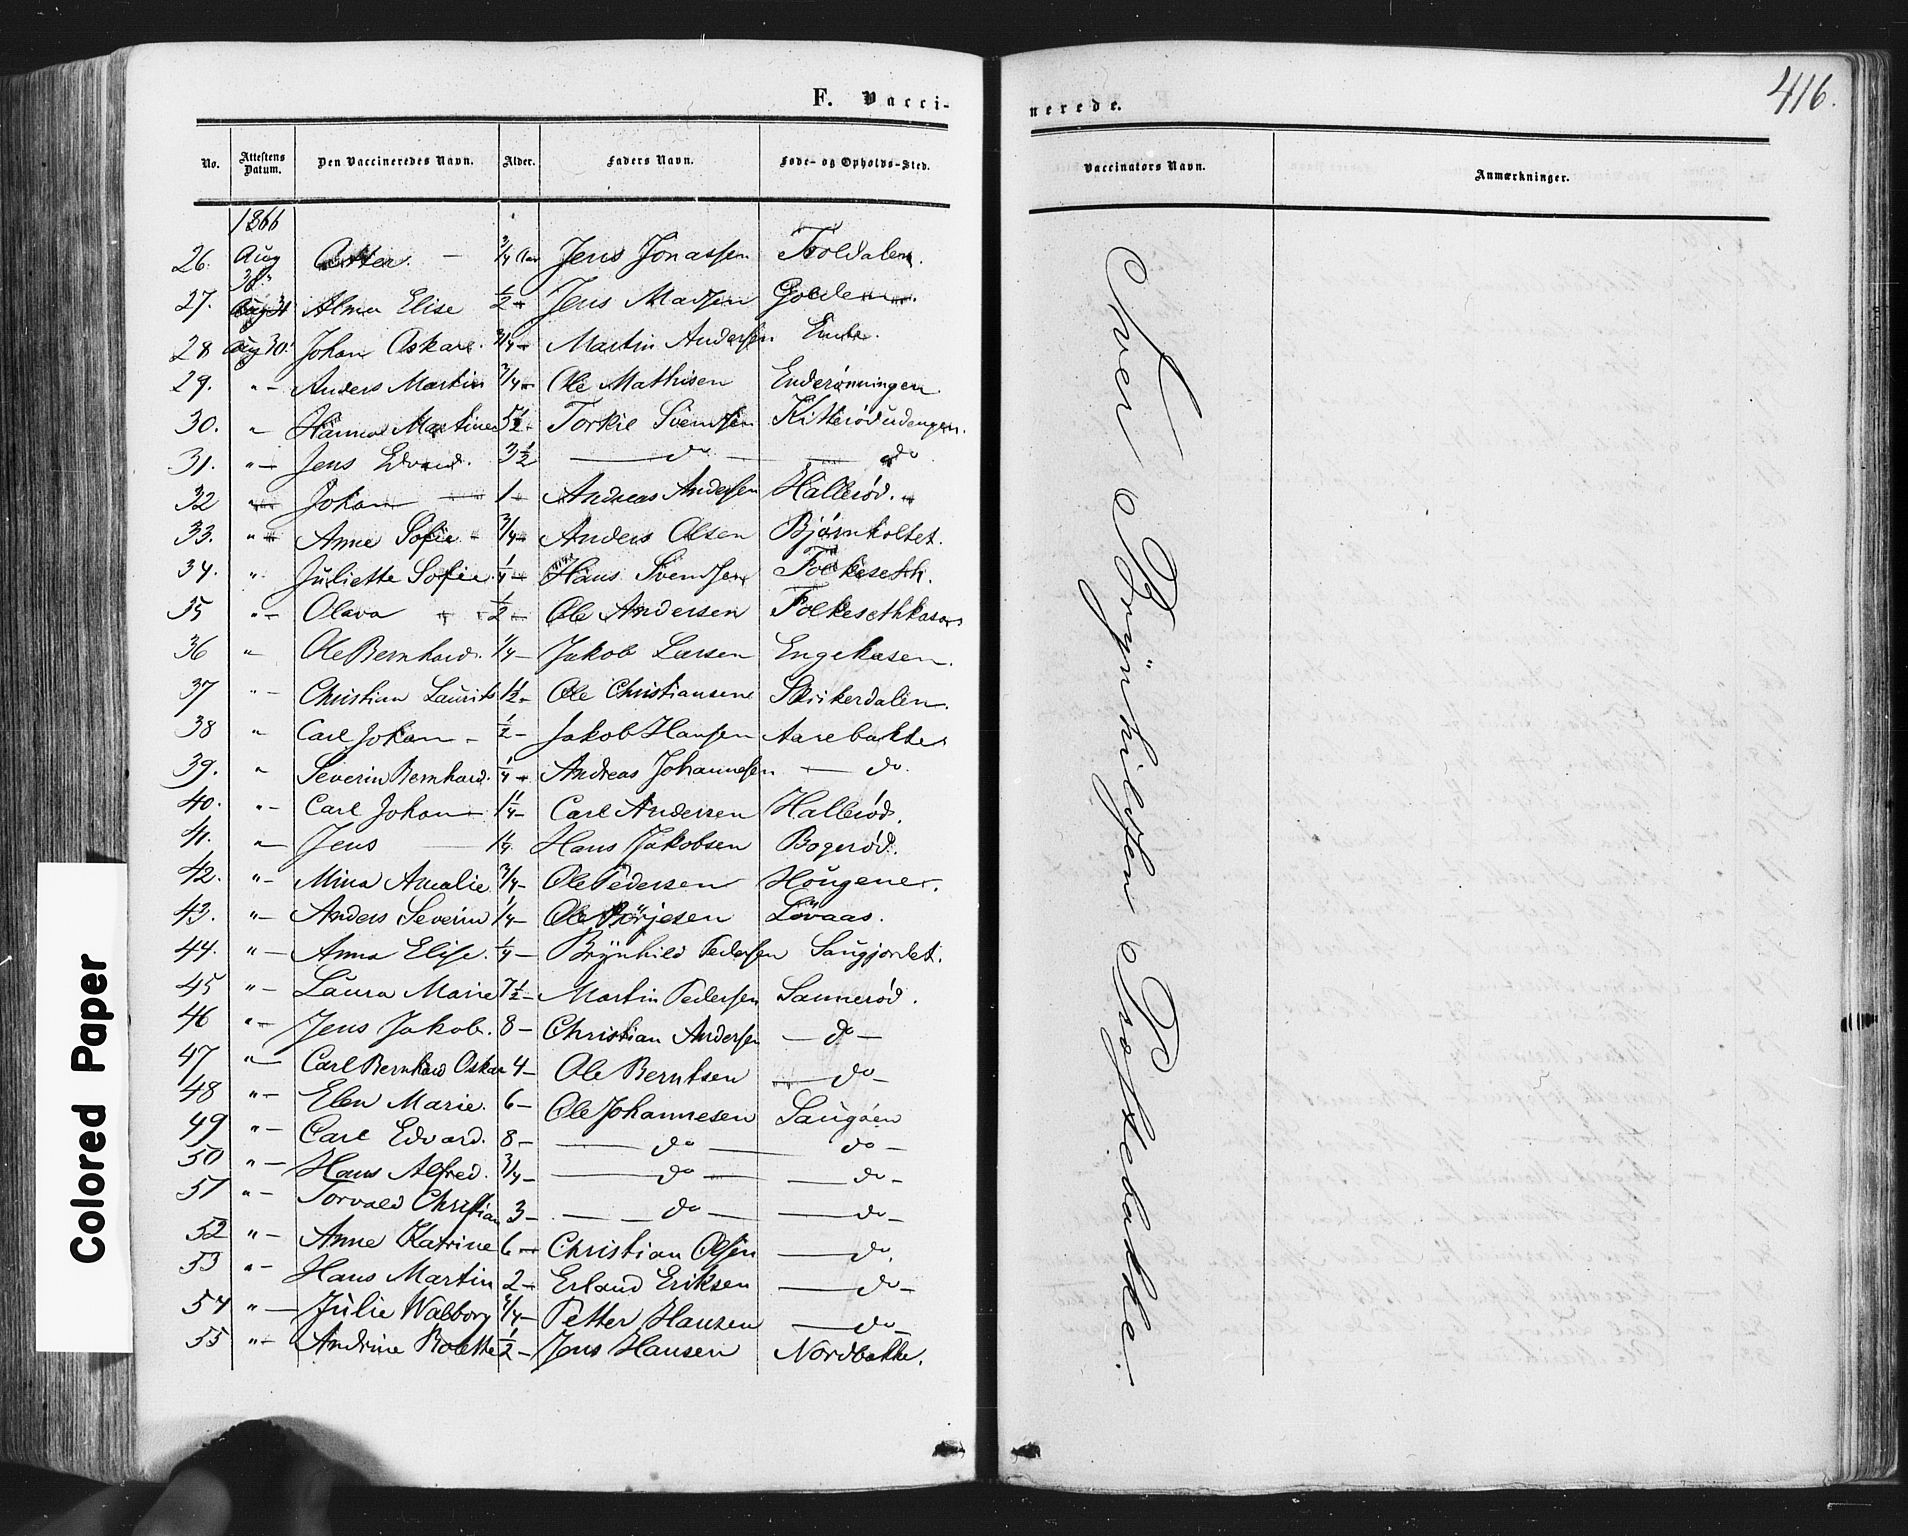 F. Vacci-
nerede.
416.
No. Attestens Datum. Den Vaccineredes Navn. Alder. Faders Navn. Føde- og Opholds-Sted. Vaccinators Navn. Anmærkninger.
1866
26. Aug 30 — 3/4 Aar Jens Jonassen Toldalen.
27. Aug 31 Alma Elise 1/2 - Jens Madsen
28 Aug 30. Johan Oskar. 3/4 - Martin Andersen
29. "- Anders Martin 3/4 - Ole Mathisen Enderønningen.
30. " Hanna Martine 5 1/2 - Torkil Svendsen Kitterødudengen.
31. "- Jens Edvard. 3 1/2 — do — — do
32 "- Johan — 1 - Andreas Andersen Hallerød.
33. "- Anne Sofie. 3/4 - Anders Olsen Bjørnholtet.
34. " Juliette Sofie. 1/4 - Hans Svendsen Folkeseth.
35 "- Olava 1/2 - Ole Andersen Folkesethkasa
36 " Ole Bernhard. 1/4 - Jakob Larsen Engekasen.
37 "- Christian Laurits 1 1/2 - Ole Christiansen Skrikerdalen.
38 " Carl Johan - 1/2 - Jakob Hansen Aarebakke
39. " Severin Bernhard. 1/4 - Andreas Johannesen — do.
40. "- Carl Johan 1 1/4 - Carl Andersen Hallerød.
41. "- Jens — 1/4 Hans Jakobsen Bogerød.
42. "- Mina Amalie 3/4 - Ole Pedersen Hougene.
43. "- Anders Severin 1/4 - Ole Börjesen Lövaas.
44. "- Anna Elise. 1/4 - Brynhild Pedersen Saugjordet.
45 "- Laura Marie 7 1/2 - Martin Pedersen Sannerød.
46 "- Jens Jakob. 8 - Christian Andersen — do —
47 "- Carl Bernhard Oskar 4 - Ole Berntsen — do -
48 "- Elen Marie. 6 - Ole Johannesen Saugøen
49 "- Carl Edvard. 8 - — do — do -
50 "- Hans Alfred. 3/4 - — do — — do -
51 "- Torvald Christian 3 - — do — — do -
52 "- Anne Katrine 6 - Christian Olsen — do.
53 " Hans Martin 2 - Erland Eriksen — do -
54 "- Julie Walborg /4 - Petter Hansen — do -
55 "- Andrine Bolette 1/2 - Jens Hansen Nordbakke.
Iver Brynhildsen Proftebakke.
Colored Paper